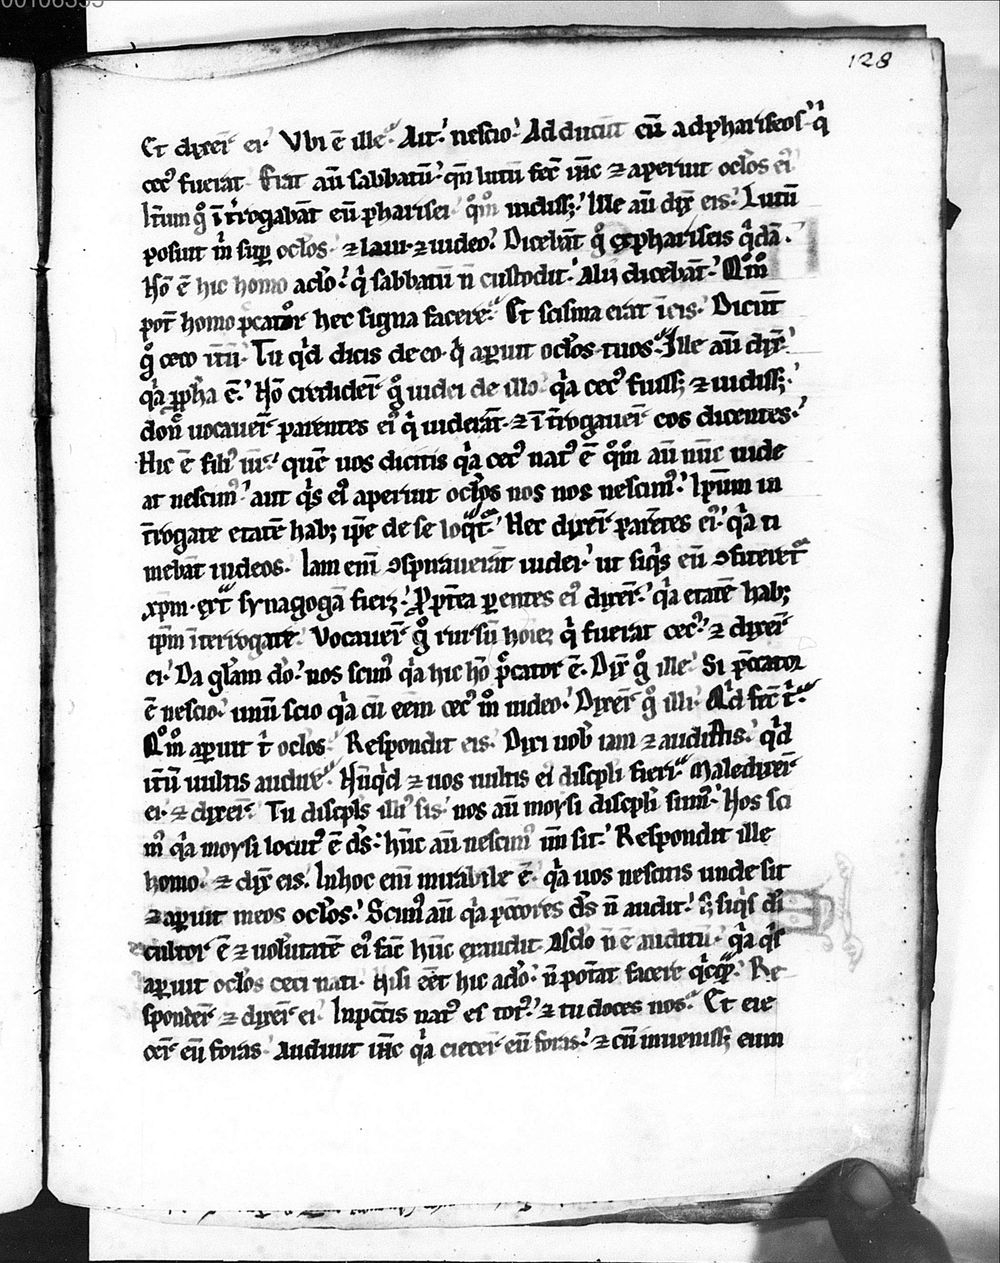 00106335
128
Et dixer̄ ei. Vbi ē ille. Ait. nescio. Adducūt eū ad phariseos qͥ
cecꝰ fuerat. Erat aū sabbatū. qn̄ lutū fec̄ ih̄c ⁊ aperuit oclōs eiꝰ
It̄um gͦ īt̄rogabāt eū pharisei. qͦmͦ uidiss;. Ille aū dix̄ eis. Lutū
posuit m̄ sup oclōs. ⁊ laui. ⁊ uideo. Dicebāt gͦ ex phariseis qͥdā.
Nō ē hic homo a dō. qͥ sabbatū n̄ custodit. Alij dicebāt. Qͦmͦ
pot̄ homo pcator hec signa facere. Et scisma erat ī eis. Dicūt
gͦ ceco it̄ū. Tu qͥd dicis de eo. qͥ apuit oclōs tuos. Ille aū dix̄.
qͥa ppha ē. Nō credider̄ gͦ iudei de illo. qͥa cecꝰ fuiss; ⁊ uidiss;.
don̄ uocauer̄ parentes eiꝰ qͥ uiderāt. ⁊ īt̄rogauer̄ eos dicentes.
Hic ē filiꝰ ur̄. quē uos dicitis qͥa cecꝰ natꝰ ē. qͦmͦ aū nūc uide
at nescimꝰ. aut qͥs eiꝰ aperuit oclōs nos nescimꝰ. Ip̄um in
t̄rogate etatē hab; ip̄e de se loqͣt̄. Hec dixer̄ parētes eiꝰ. qͥa ti
mebāt iudeos. Iam enī ꝯspirauerāt iudei. ut siqͥs eū ꝯfiteret̄
xp̄m. ext̄ synagogā fiet. Propt̄ea parentes eiꝰ dixer̄. qͥa etatē hab;
ip̄m īterrogate. Vocauer̄ gͦ rursū hoīez qͥ fuerat cecꝰ. ⁊ dixer̄
ei. Da gl̄am dō. nos scimꝰ qͥa hic hō pcator ē. Dix̄ gͦ ille. Si pccator
ē nescio. unū scio qͥa cū eēm cecꝰ mͦ uideo. Dixer̄ gͦ illi. Qͥd fec̄ tͥ.
Qͦmͦ apuit tͥ oclōs. Respondit eis. Dixi uob̄ iam ⁊ audistis. qͥd
it̄ū uultis audire. Nūqͥd ⁊ uos uultis eiꝰ discpli fieri. Maledixer̄
ei. ⁊ dixer̄. Tu discpls illiꝰ sis. nos aū moysi discpli sumꝰ. Nos sci
mꝰ qͥa moysi locutꝰ ē ds̄. hūc aū nescimꝰ un̄ sit. Respondit ille
homo. ⁊ dix̄ eis. In hoc enī mirabile ē. qͥa uos nescitis unde sit
⁊ apuit meos oclōs. Scimꝰ aū qͥa pccores ds̄ n̄ audit. S; siqͥs dī
cultor ē ⁊ uolūtatē eiꝰ fac̄ hūc exaudit. A sclō n̄ ē auditū. qͥa qͥs
apuit oclōs ceci nati. Nisi eēt hic a dō. n̄ pot̄at facere qͥcqͣ. Re
sponder̄ ⁊ dixer̄ ei. In pccis natꝰ es totꝰ. ⁊ tu doces nos. Et eie
cer̄ eū foras. Audiuit ih̄c qͥa eiecer̄ eū foras. ⁊ cū inueniss; eum